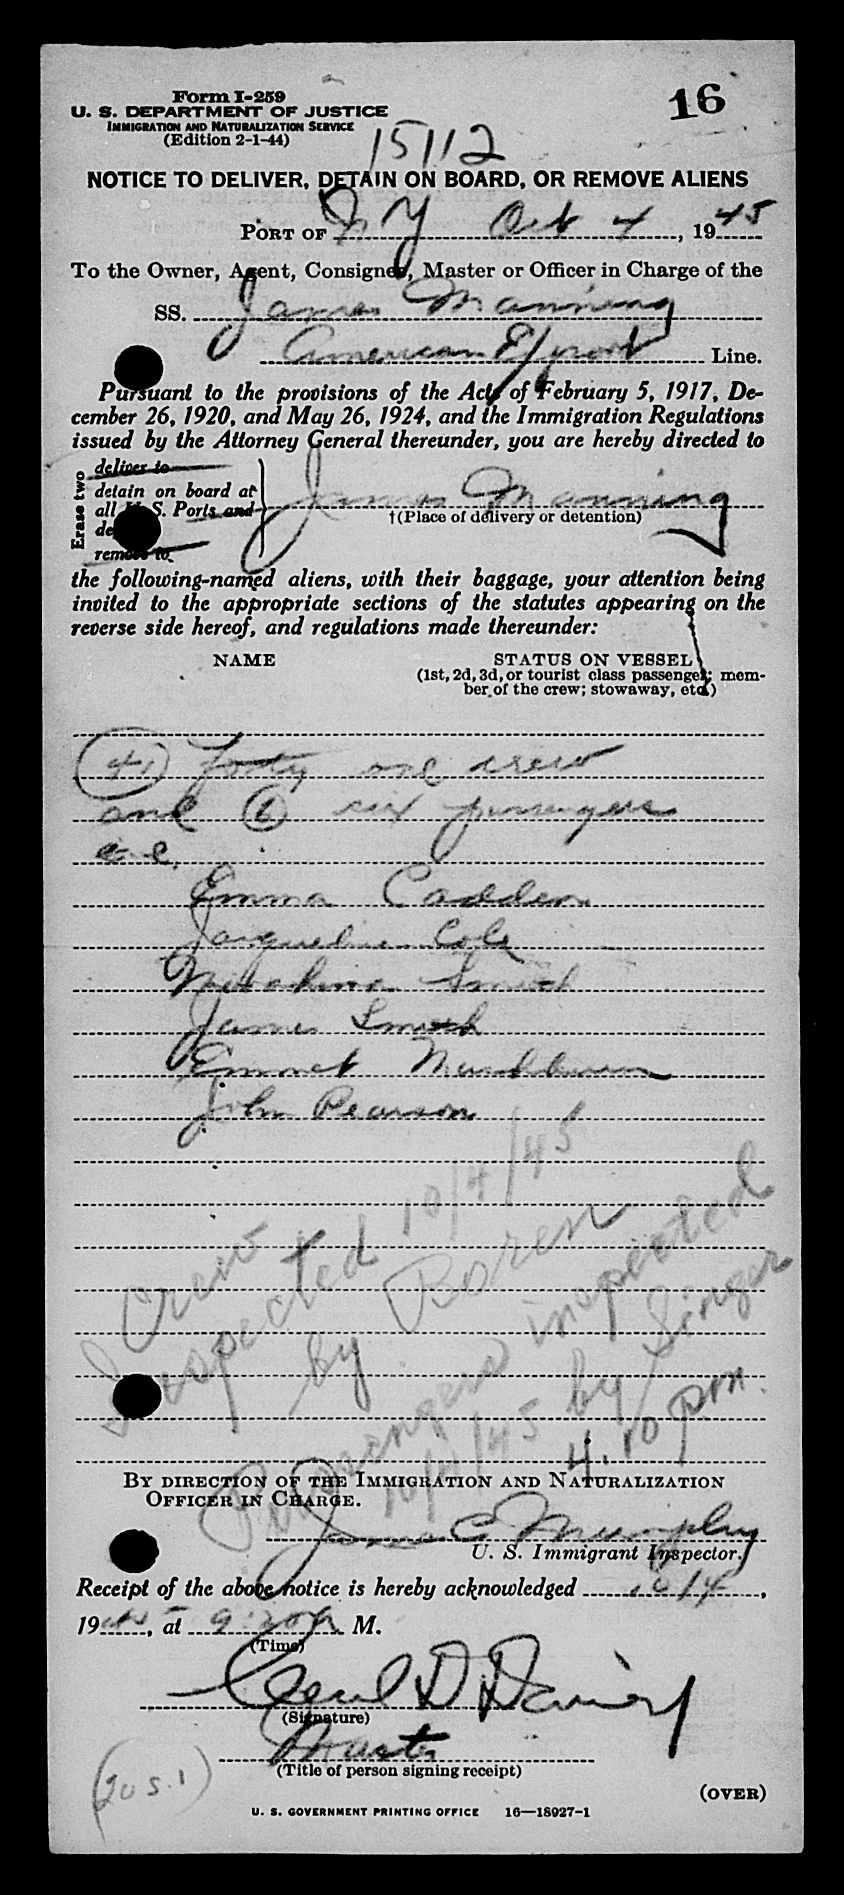 Form I-259
16
U. S. DEPARTMENT OF JUSTICE
IMMIGRATION AND NATURALIZATION SERVICE
(Edition 2-1-44)
15112
NOTICE TO DELIVER, DETAIN ON BOARD, OR REMOVE ALIENS
PORT OF N Y Oct 4, 1945
To the Owner, Agent, Consignee, Master or Officer in Charge of the
SS. James Manning
American Export Line.
Pursuant to the provisions of the Acts of February 5, 1917, De-
cember 26, 1920, and May 26, 1924, and the Immigration Regulations
issued by the Attorney General thereunder, you are hereby directed to
Erase two
deliver to
detain on board at
all U. S. Ports and
remove to
James Manning
†(Place of delivery or detention)
the following-named aliens, with their baggage, your attention being
invited to the appropriate sections of the statutes appearing on the
reverse side hereof, and regulations made thereunder:
NAME STATUS ON VESSEL
(1st, 2d, 3d, or tourist class passenger; mem-
ber of the crew; stowaway, etc.)
(41) Forty one crew
and (6) six passengers
Emma Cadden
Jacqueline Cole
Smith
James Smith
Emmet
John Pearson
Crew
Inspected 10/4/45
by Boren
Passengers inspected
10/4/45 by Singer
4.10 pm.
BY DIRECTION OF THE IMMIGRATION AND NATURALIZATION
OFFICER IN CHARGE.
James C Murphy
U. S. Immigrant Inspector.
Receipt of the above notice is hereby acknowledged 10/4,
1945, at 9:20 P. M.
(Time)
Cecil D
(Signature)
Master
(Title of person signing receipt)
(20 S. 1)
(OVER)
U. S. GOVERNMENT PRINTING OFFICE 16—18927-1